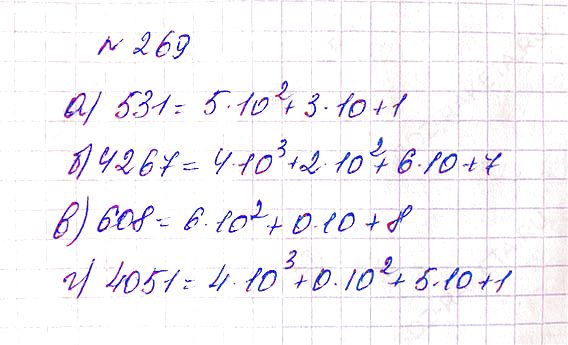 № 269
а) 531 = 5·10² + 3·10 + 1
б) 4267 = 4·10³ + 2·10² + 6·10 + 7
в) 608 = 6·10² + 0·10 + 8
г) 4051 = 4·10³ + 0·10² + 5·10 + 1